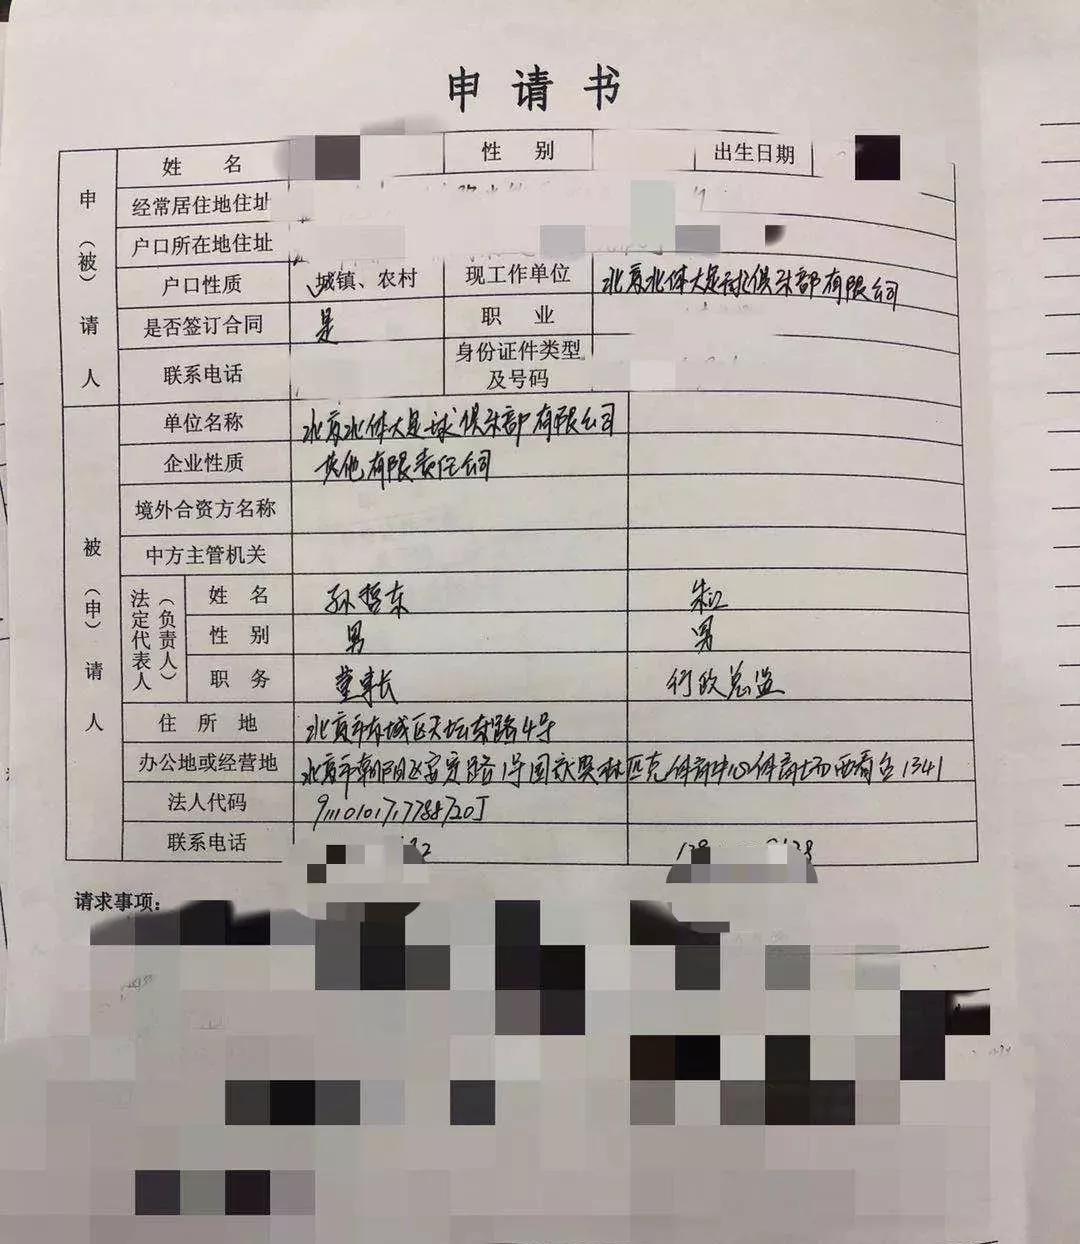 申请书
申（被）请人
姓 名 性 别 出生日期
经常居住地住址
户口所在地住址
户口性质 城镇、农村 现工作单位 北京北体大足球俱乐部有限公司
是否签订合同 是 职 业
联系电话 身份证件类型及号码
被（申）请人
单位名称 北京北体大足球俱乐部有限公司
企业性质 其他有限责任公司
境外合资方名称
中方主管机关
法定代表人（负责人）
姓 名 孙哲东 朱江
性 别 男 男
职 务 董事长 行政总监
住 所 地 北京市东城区天坛东路4号
办公地或经营地 北京市朝阳区安定路1号国家奥林匹克体育中心体育场西看台1341
法人代码 91110101717788720J
联系电话
请求事项：